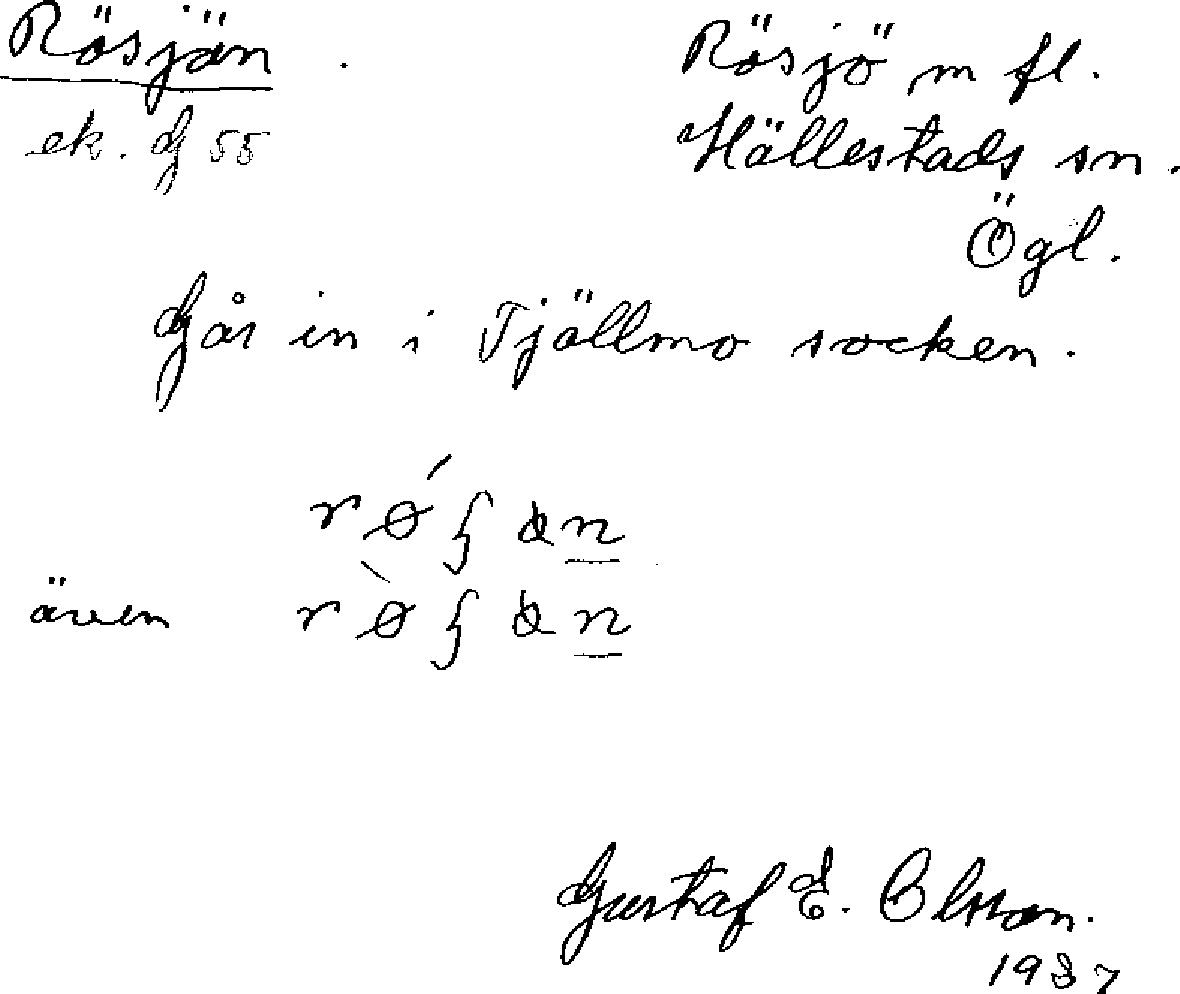 Rösjön.
Rösjö m fl.
ek. G 55
Hällestads sn.
Ögl.
Går in i Tjällmo socken.
även
Gustaf E. Olsson.
1937